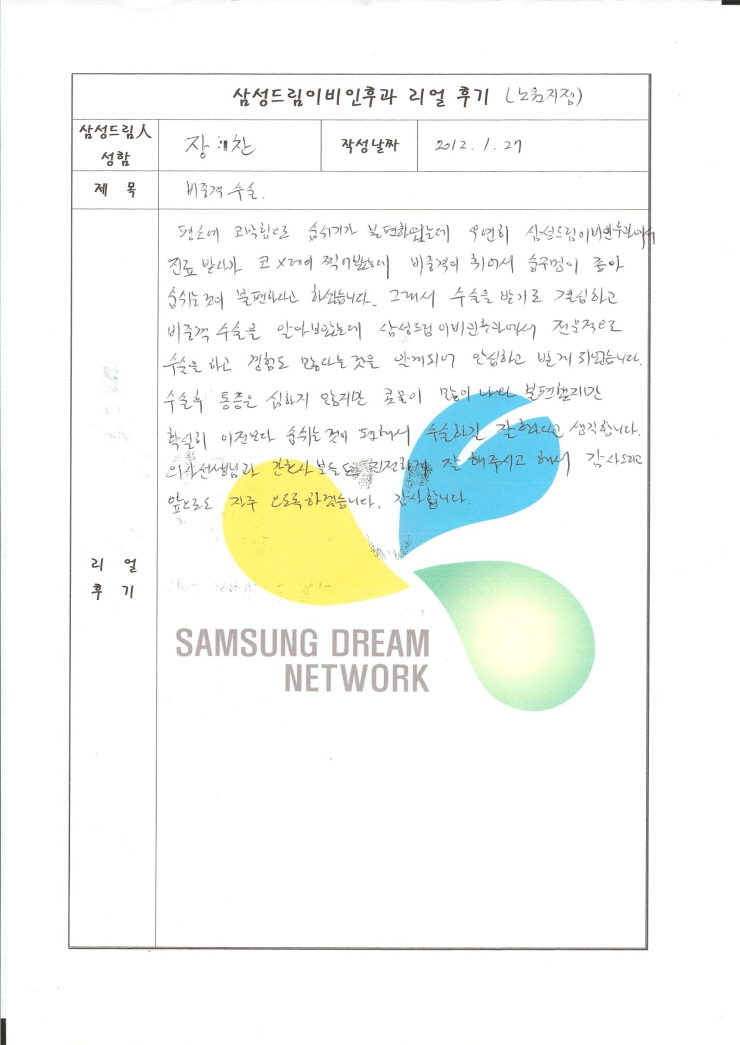 삼성드림이비인후과 리얼 후기 (노원지점)
삼성드림人
성함
장 찬
작성날짜
2012. 1. 27
제 목
비중격 수술.
평소에 코막힘으로 숨쉬기가 불편하였는데 우연히 삼성드림이비인후과에서
진료 받다가 코 X레이 찍어봤는데 비중격이 휘어서 숨구멍이 좁아
숨쉬는것이 불편하다고 하셨습니다. 그래서 수술을 받기로 결심하고
비중격 수술을 알아보았는데 삼성드림이비인후과에서 전문적으로
수술을 하고 경험도 많다는 것을 알게되어 안심하고 받게 되었습니다.
수술후 통증은 심하지 않지만 콧물이 많이 나와 불편했지만
확실히 이전보다 숨쉬는것이 편해서 수술하길 잘했다고 생각합니다.
의사선생님과 간호사분들도 친절하게 잘 해주시고 해서 감사드리고
앞으로도 자주 오도록하겠습니다. 감사합니다.
리 얼
후 기
SAMSUNG DREAM
NETWORK